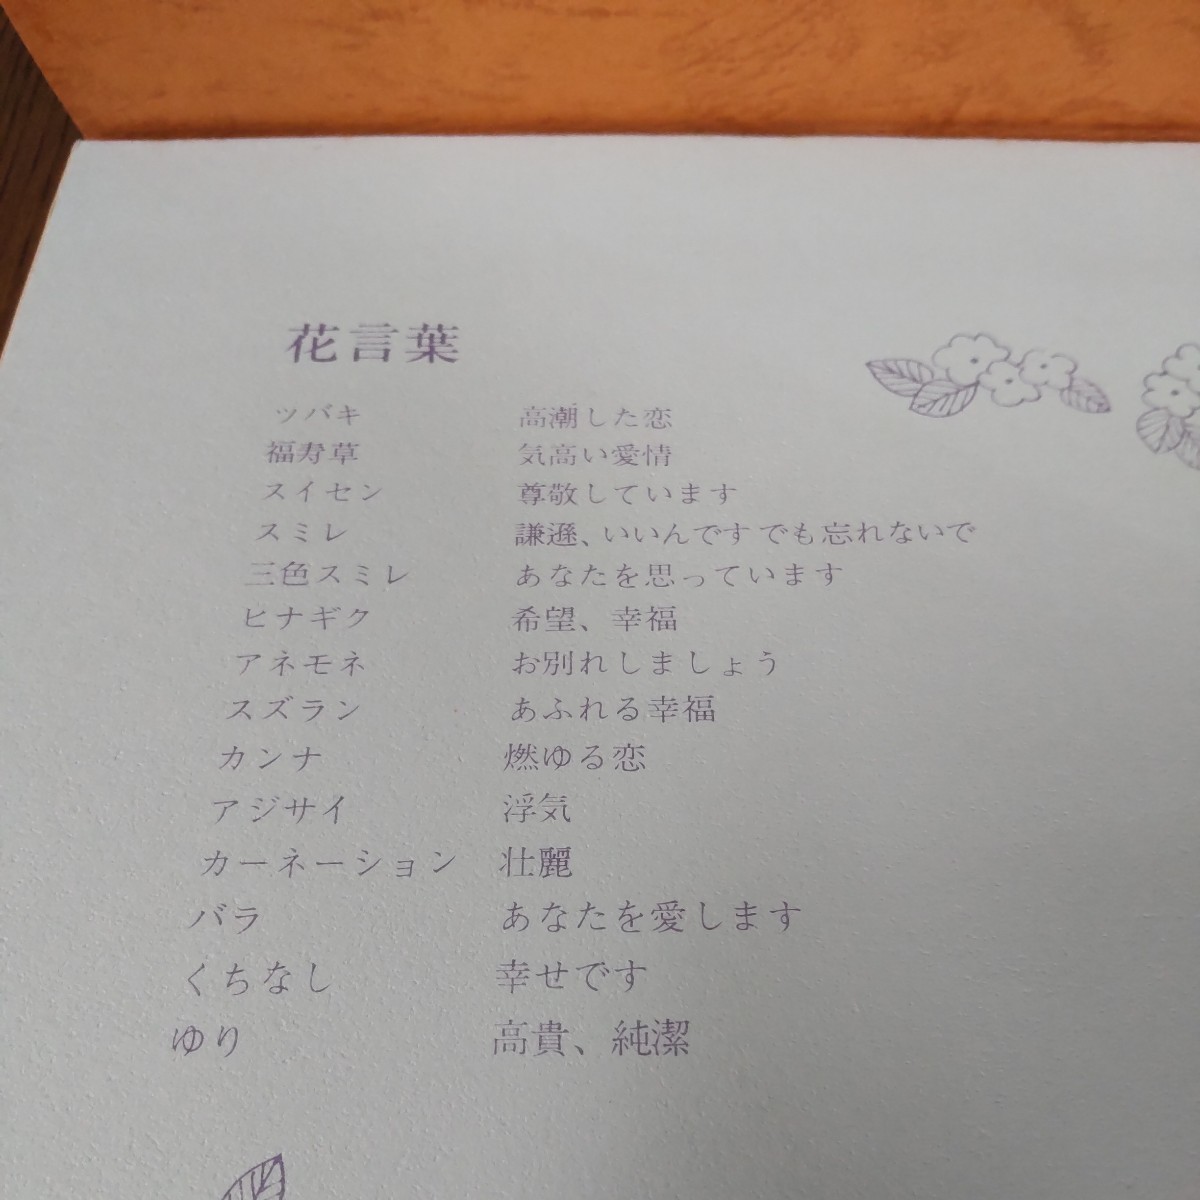 花言葉
ツバキ 高潮した恋
福寿草 気高い愛情
スイセン 尊敬しています
スミレ 謙遜、いいんです でも忘れないで
三色スミレ あなたを思っています
ヒナギク 希望、幸福
アネモネ お別れしましょう
スズラン あふれる幸福
カンナ 燃ゆる恋
アジサイ 浮気
カーネーション 壮麗
バラ あなたを愛します
くちなし 幸せです
ゆり 高貴、純潔